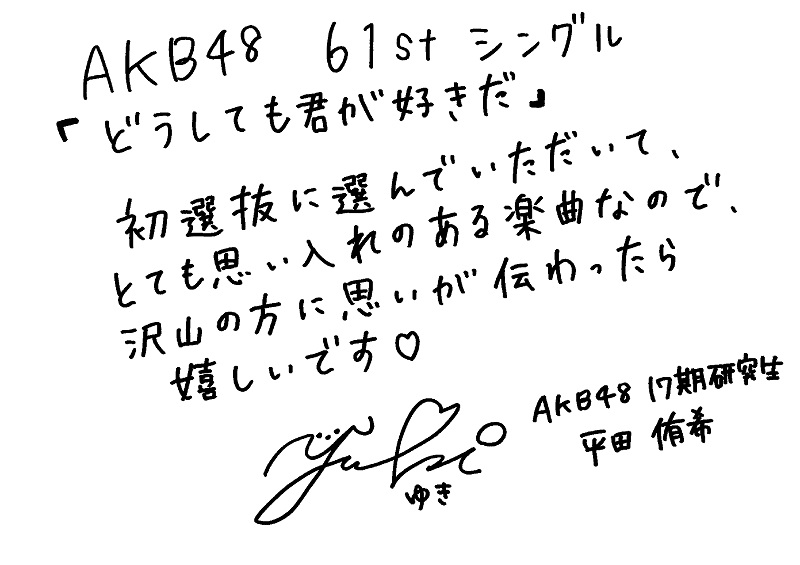 AKB48 61st シングル
『どうしても君が好きだ』
初選抜に選んでいただいて、
とても思い入れのある楽曲なので、
沢山の方に思いが伝わったら
嬉しいです♡
AKB48 17期研究生
平田 侑希
Yuki
ゆき